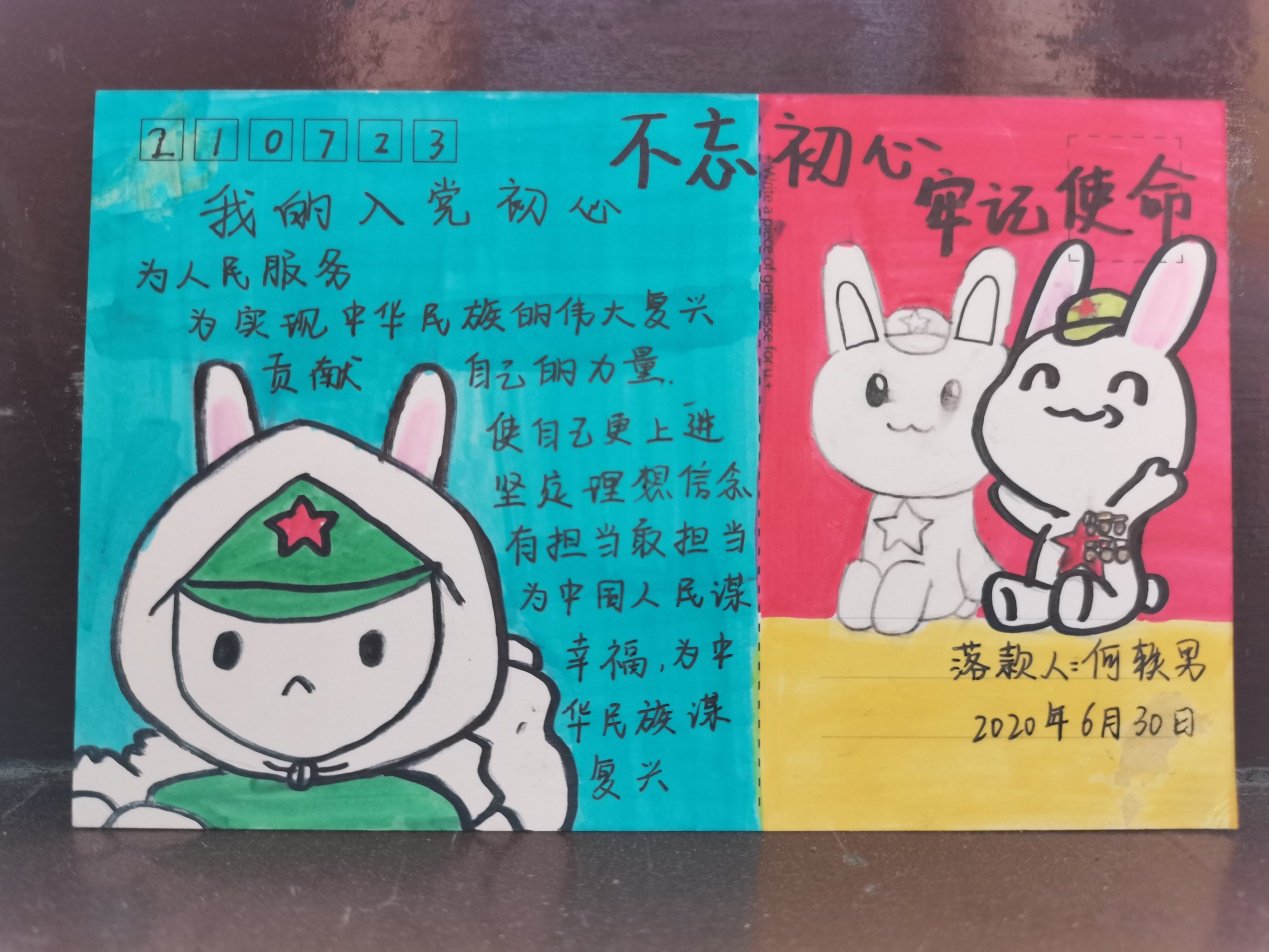 210723
不忘初心
牢记使命
我的入党初心
为人民服务
为实现中华民族的伟大复兴
贡献 自己的力量.
使自己更上进
坚定理想信念
有担当敢担当
为中国人民谋
幸福,为中
华民族谋
复兴
write a piece of gentlesse for u.+
落款人:何轶男
2020年6月30日